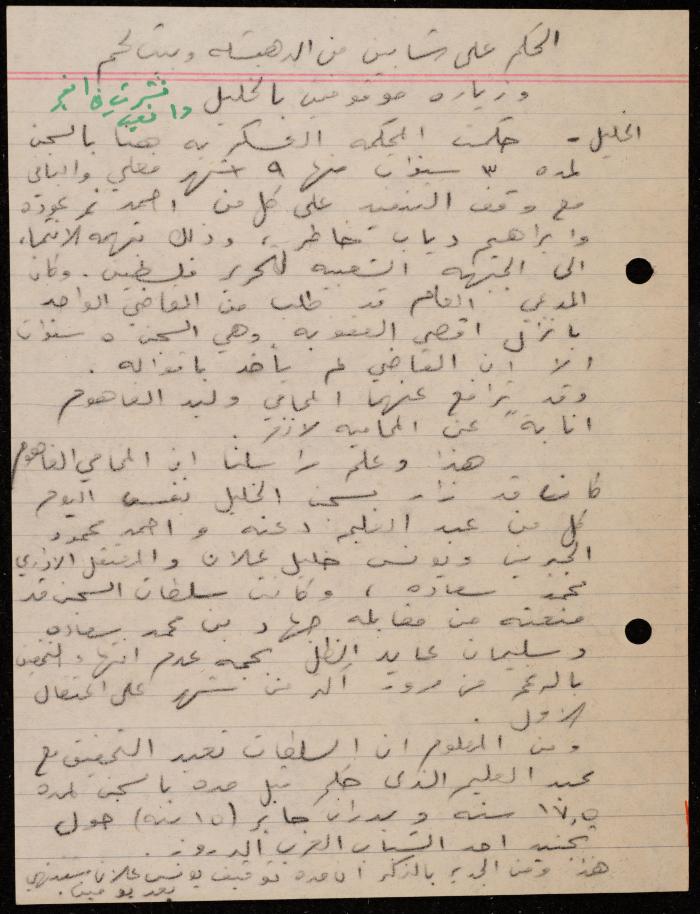 الحكم على شابين من الدهيشة وبيت لحم
وزيارة موقوفين بالخليل
نشرت في الفجر
الخليل - حكمت المحكمة العسكرية هنا بالسجن
لمدة ٣ سنوات منها ٩ اشهر فعلي والباقي
مع وقف التنفيذ على كل من احمد نمر عودة
وابراهيم دياب خاطر، وذلك بتهمة الانتماء
الى الجبهة الشعبية لتحرير فلسطين. وكان
المدعي العام قد طلب من القاضي الواحد
بانزال اقصى العقوبة وهي السجن ٥ سنوات
الا ان القاضي لم يأخذ باقواله.
وقد ترافع عنهما المحامي وليد الفاهوم
انابة عن المحامية لانغر.
هذا وعلم مراسلنا ان المحامي الفاهوم
كان قد زار بسجن الخليل نفسه اليوم
كل من عبد العليم دعنه و احمد محمود
ويونس خليل علان والمعتقل الاداري
محمد سعاده، وكانت سلطات السجن قد
منعته من مقابلة جهاد بن محمد سعاده
وسليمان عايد الطل بحجة عدم انتهاء التحقيق
بالرغم من مرور اكثر من شهر على اعتقال
الاول.
ومن المعلوم ان السلطات تعيد التحقيق مع
عبد العليم الذي حكم قبل مدة بالسجن لمدة
١٧,٥ سنه وبدران جابر (١٥ سنه) حول
تجنيد احد الشباب العرب الدروز.
هذا ومن الجدير بالذكر ان مدة توقيف يونس علان ستنتهي
بعد يومين